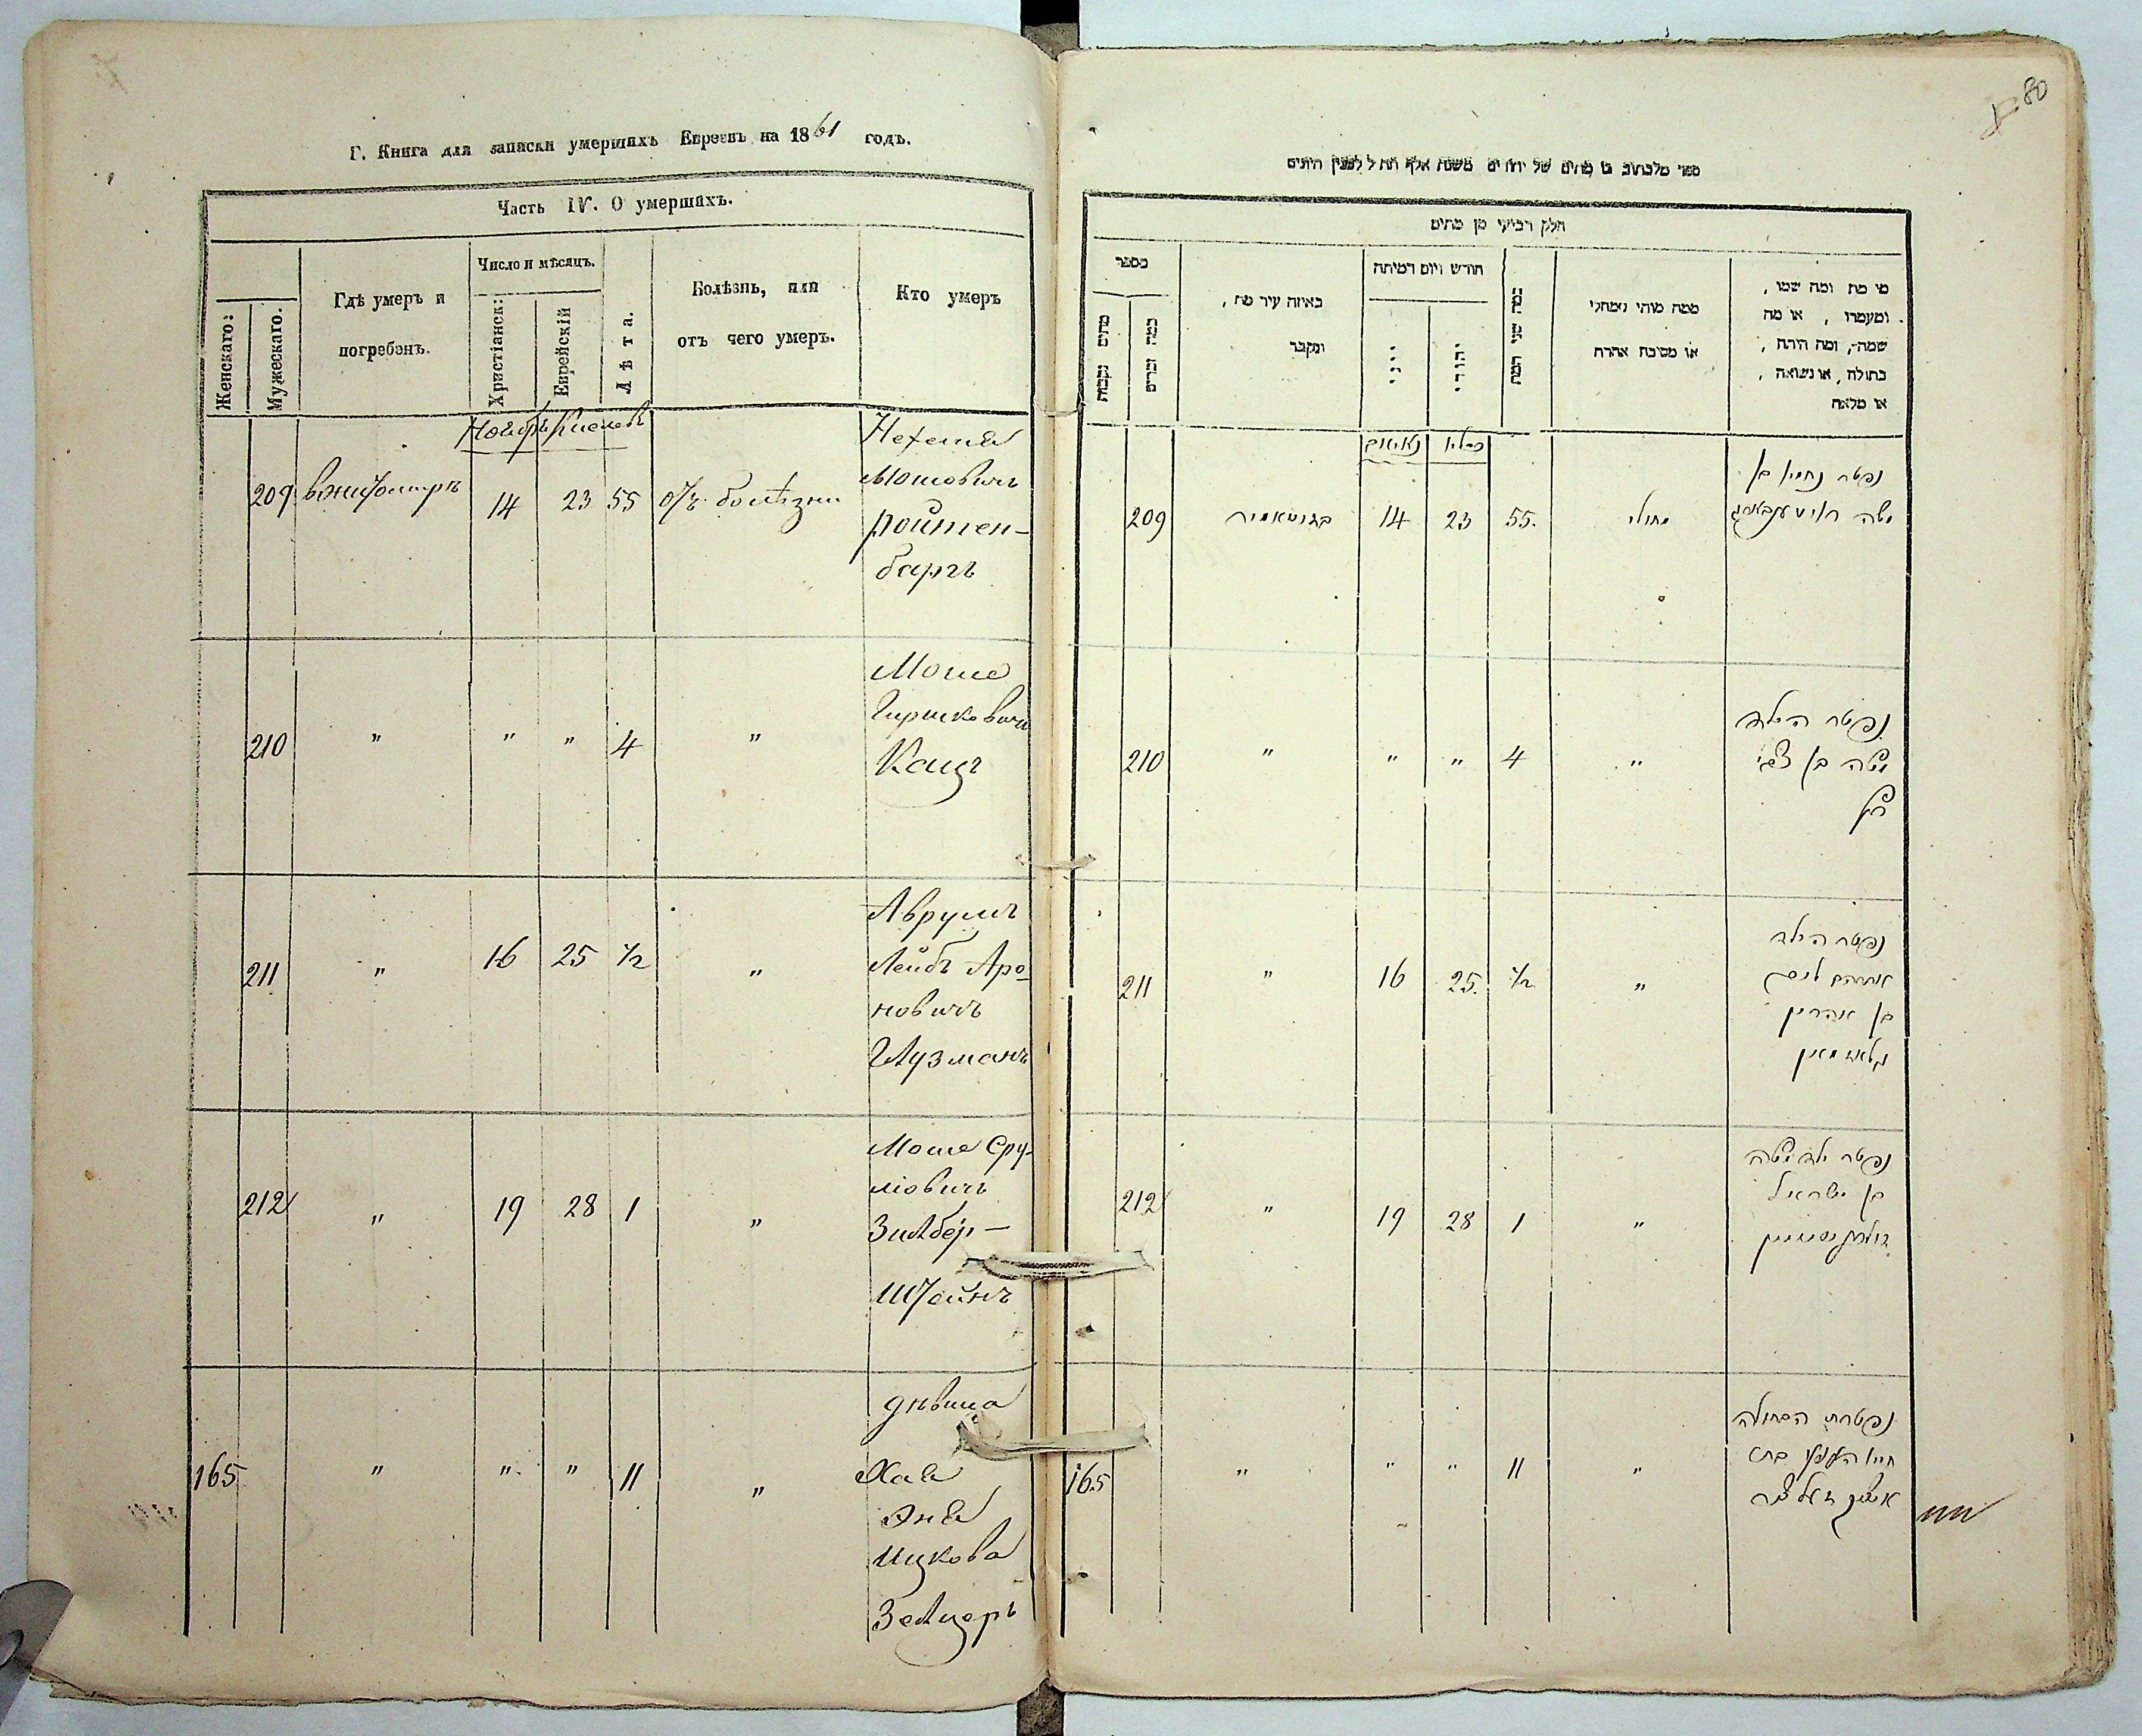 Г. Книга для записки умершихъ Евреевъ на 1861 годъ.
Часть IV. О умершихъ.
Женскаго:
Мужескаго.
Гдѣ умеръ и
погребенъ.
Число и мѣсяцъ.
Христіанск:
Еврейскій
Лѣта.
Болѣзнь, или
отъ чего умеръ.
Кто умеръ
Ноябрь Кислевъ
209 вжитомирѣ 14 23 55 отъ болѣзни
Нехемія
Мошовичъ
Ройтен-
баргъ
210 " " " 4 "
Моше
Гершковичъ
Кацъ
211 " 16 25 1/2 "
Аврумъ
Лейбъ Аро-
новичъ
Глузманъ
212 " 19 28 1 "
Моше Сру-
ліовичъ
Зилбер-
штейнъ
165 " " " 11 "
дѣвица
Хая
Эня
Ицкова
Зелцеръ
80
חלק רביעי מן מתים
מספר
מתים נקבות
כמה זכרים
באיזה עיר מת,
ונקבר
חודש ויום דמיתה
יווני
יהודי
כמה שני המת
ממה מוהי
או מסיבת אחרת
מי מת ומה שמו,
ומעמדו, או מה
שמה, ומה היתה,
בתולה, או נשואה,
כסליו
209 14 23 55. מחולי
נפטר נחמי' בן
משה רויטענבארג
210 " " " 4 "
נפטר הילד
משה בן צבי
כץ
211 " 16 25. 1/2 "
נפטר הילד
אברהם ליב
בן אהרן
גלוזמאן
212 " 19 28 1 "
נפטר ילד משה
בן ישראל
זילבערשטיין
165 " " " 11 "
נפטרת הבתולה
חיי' בת
איציק זעלצער